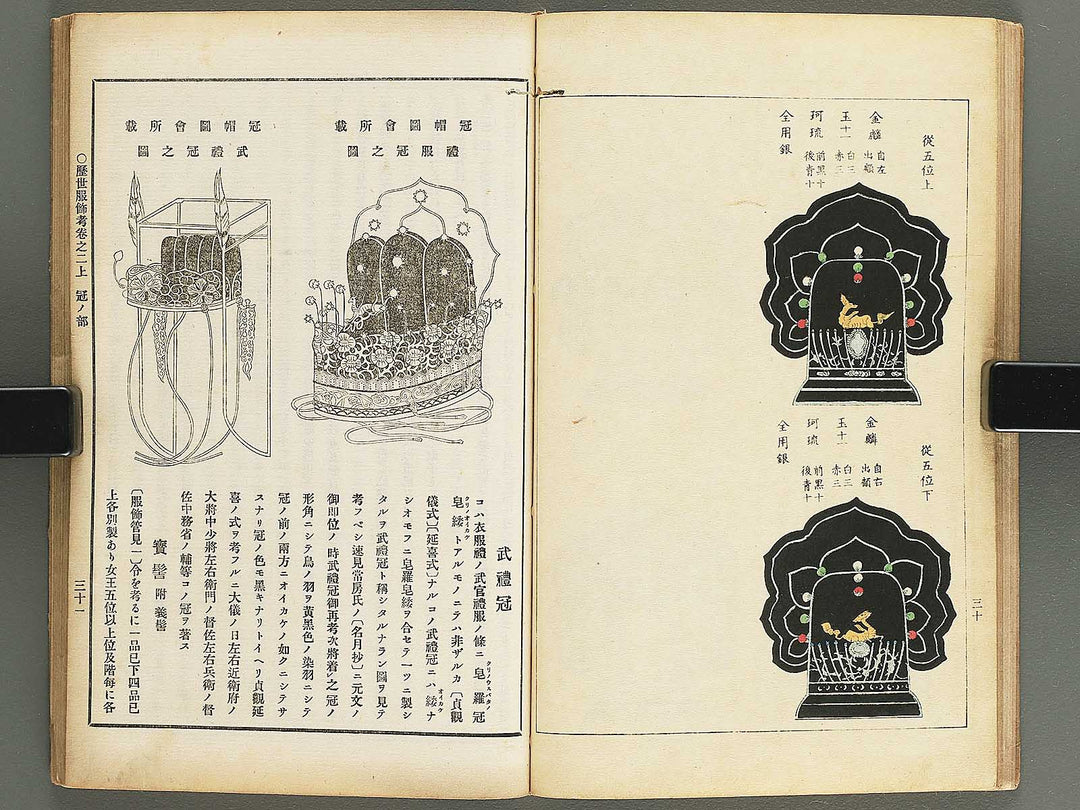 從五位上
金麟 自左出顕
玉十一 白三赤三
珂琉 前黒十後青十
全用銀
從五位下
金麟 自右出顕
玉十一 白三赤三
珂琉 前黒十後青十
全用銀
三十
冠帽圖會所載
禮服冠之圖
冠帽圖會所載
武禮冠之圖
武禮冠
コハ衣服禮ノ武官禮服ノ條ニ皂羅冠
皂緌トアルモノニテハ非ザルカ〔貞觀
儀式〕〔延喜式〕ナルコノ武禮冠ニハ緌ナ
シオモフニ皂羅皂緌ヲ合セテ一ツニ製シ
タルヲ武禮冠ト稱シタルナラン圖ヲ見テ
考フベシ速見常房氏ノ〔名月抄〕ニ元文ノ
御即位ノ時武禮冠御再考次將着之冠ノ
形角ニシテ鳥ノ羽ヲ黄黑色ノ染羽ニシテ
冠ノ前ノ兩方ニオイカケノ如クニシテサ
スナリ冠ノ色モ黑キナリトイヘリ貞觀延
喜ノ式ヲ考フルニ大儀ノ日左右近衞府ノ
大將中少將左右衞門ノ督佐左右兵衞ノ督
佐中務省ノ輔等コノ冠ヲ著ス
寳髻 附義髻
〔服飾管見一〕令を考るに一品已下四品已
上各別製あり女王五位以上位及階毎に各
○歷世服飾考卷之二上 冠ノ部
三十一